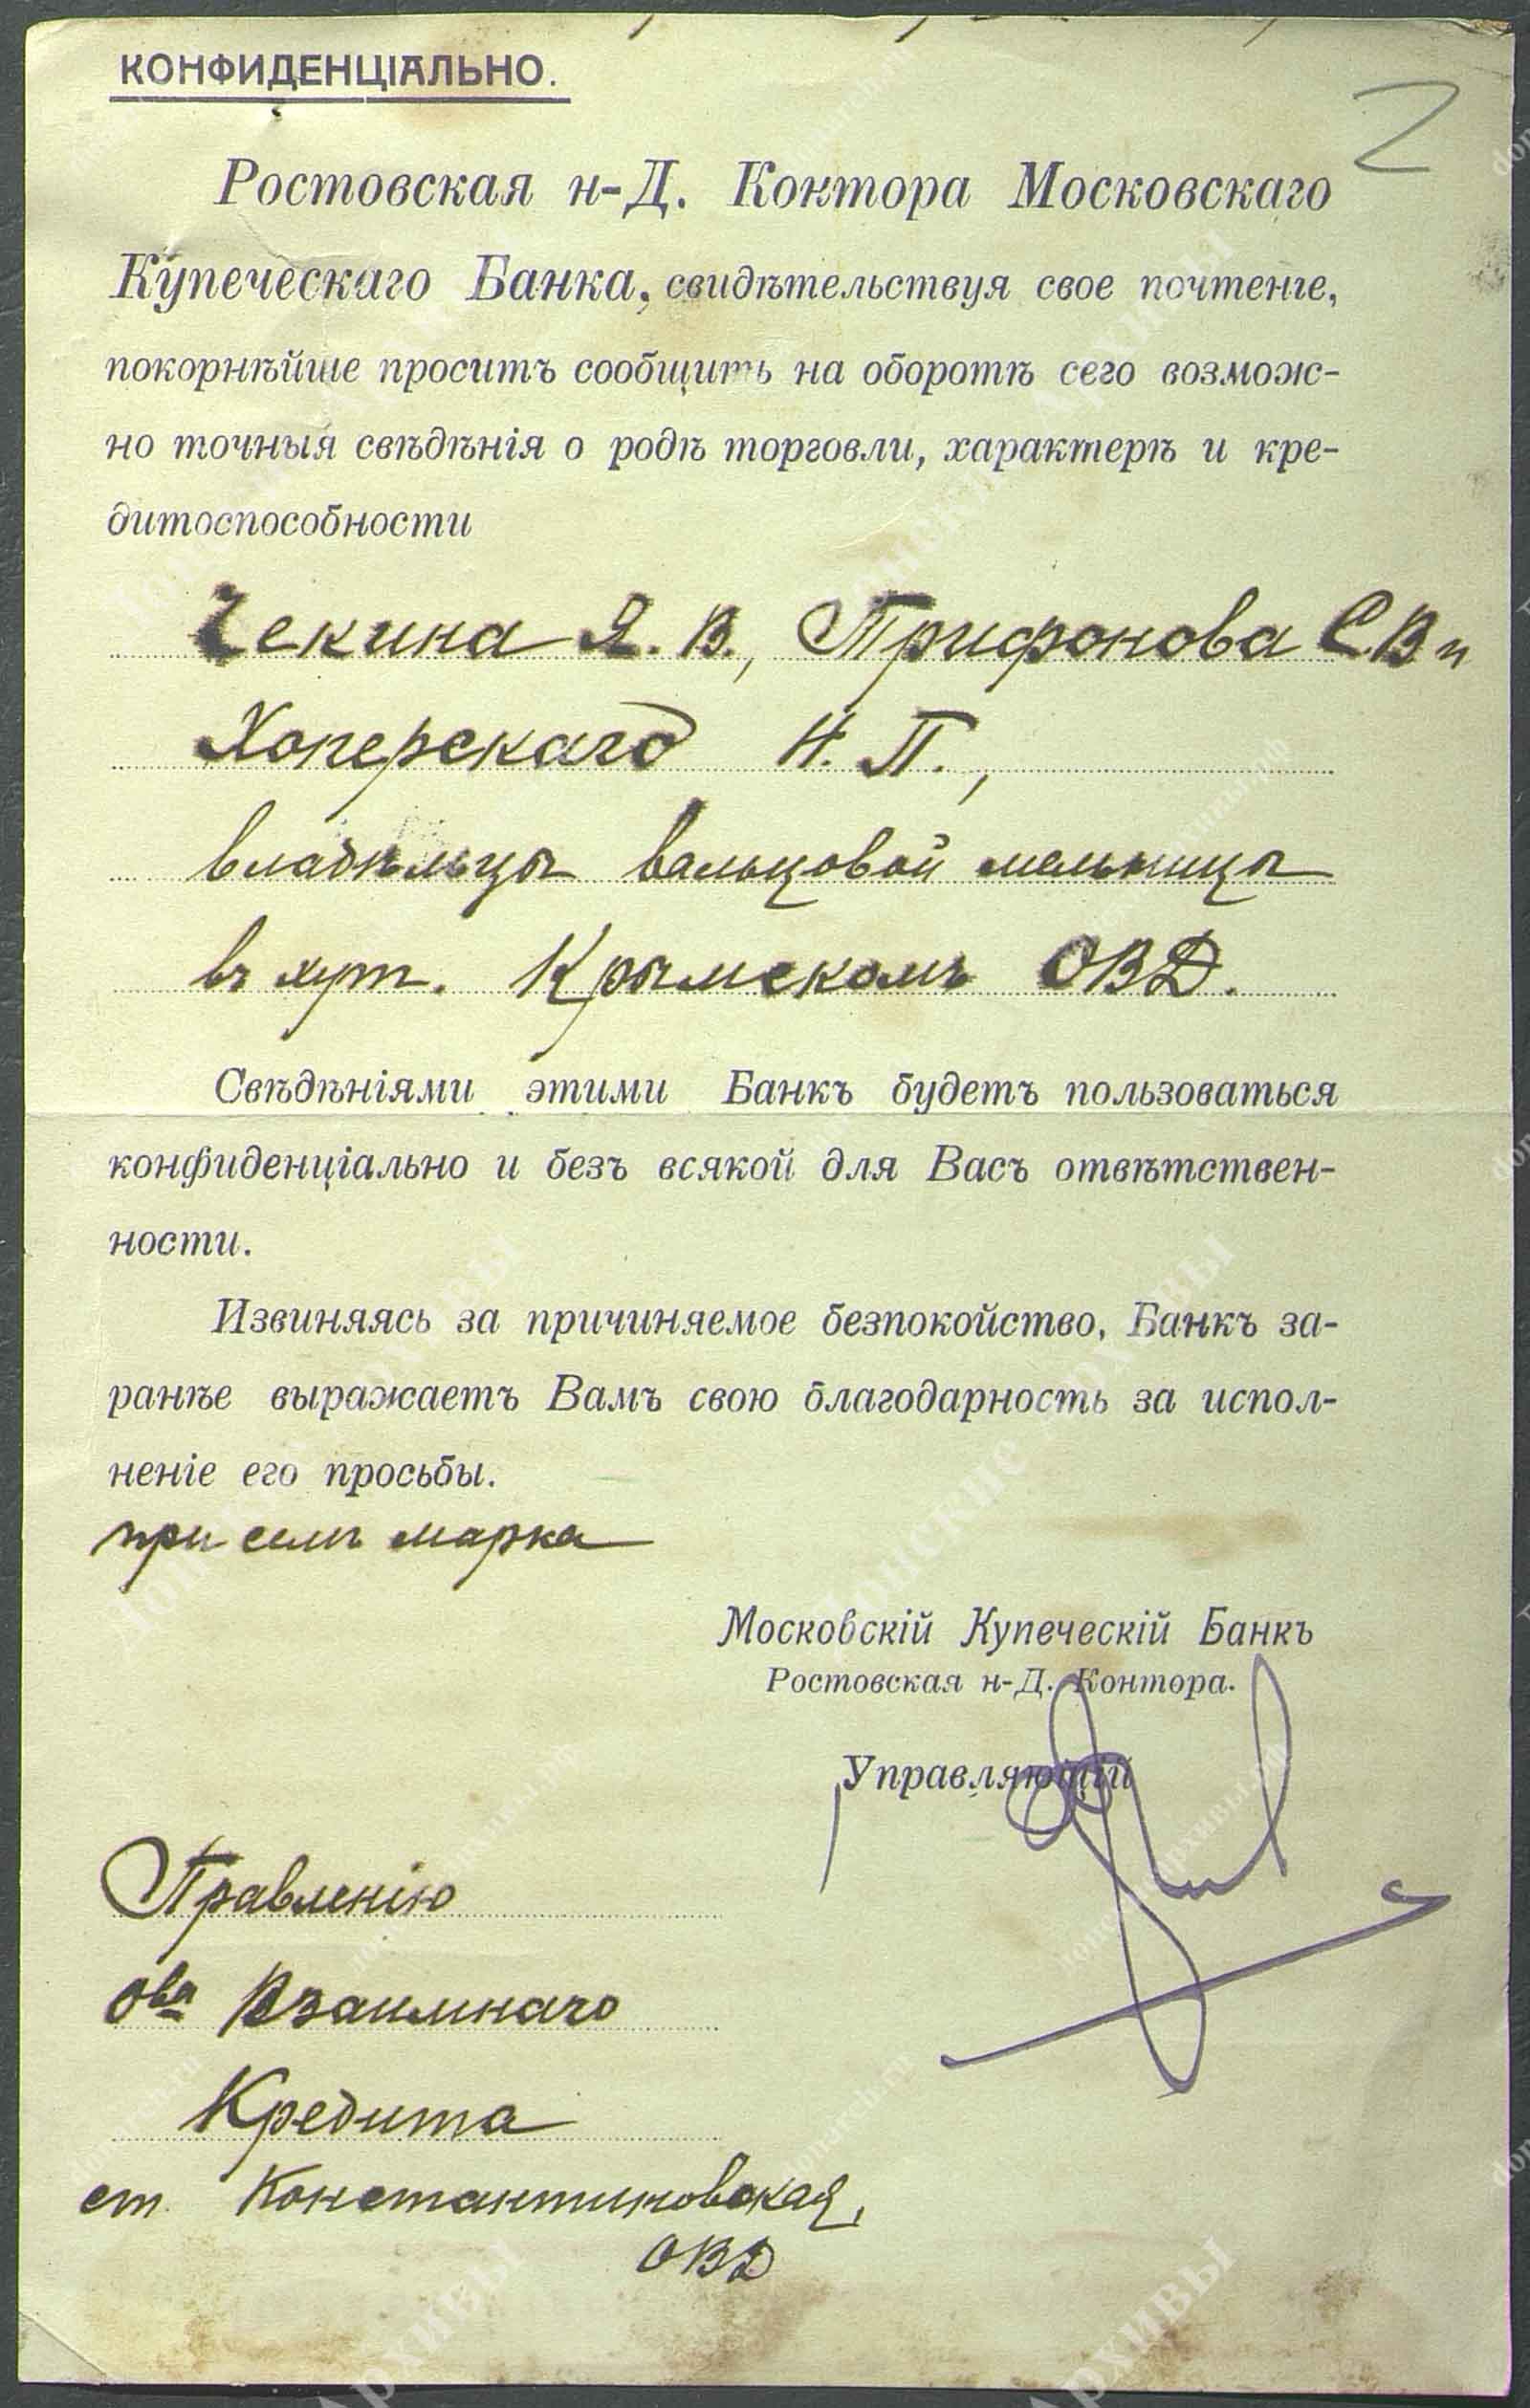 КОНФИДЕНЦІАЛЬНО.
2
Ростовская н-Д. Контора Московскаго
Купеческаго Банка, свидѣтельствуя свое почтеніе,
покорнѣйше проситъ сообщить на оборотѣ сего возмож-
но точныя свѣдѣнія о родѣ торговли, характерѣ и кре-
дитоспособности
Чекина Я. В., Трифонова С. В. и
Хоперскаго Н. П.,
владѣльцы вальцовой мельницы
въ хут. Крымскомъ ОВД.
Свѣдѣніями этими Банкъ будетъ пользоваться
конфиденціально и безъ всякой для Васъ отвѣтствен-
ности.
Извиняясь за причиняемое безпокойство, Банкъ за-
ранѣе выражаетъ Вамъ свою благодарность за испол-
неніе его просьбы.
при семъ марка
Московскій Купеческій Банкъ
Ростовская н-Д. Контора.
Управляющій
Правленію
Ова Взаимнаго
Кредита
ст. Константиновская,
ОВД